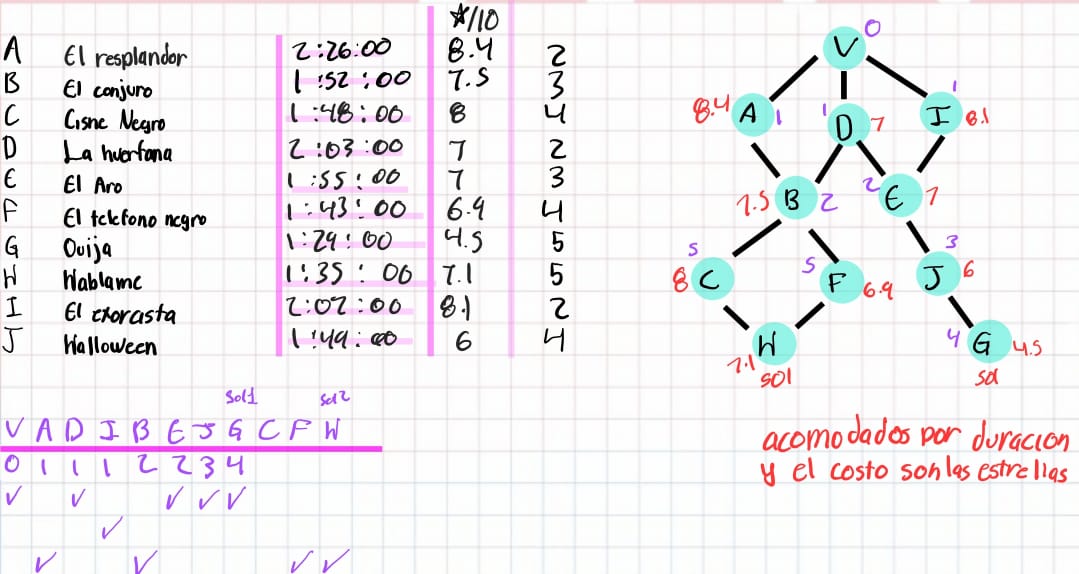 ☆/10
A El resplandor 2:26:00 8.4 2
B El conjuro 1:52:00 7.5 3
C Cisne Negro 1:48:00 8 4
D La huerfana 2:03:00 7 2
E El Aro 1:55:00 7 3
F El telefono negro 1:43:00 6.9 4
G Ouija 1:29:00 4.5 5
H Hablame 1:35:00 7.1 5
I El exorasta 2:02:00 8.1 2
J Halloween 1:49:00 6 4
V 0
8.4 A 1
1 D 7
1 I 8.1
7.5 B 2
2 E 7
5 8 C
5 F 6.9
3 J 6
7.1 H sol
4 G 4.5 sol
sol1 sol2
V A D I B E J G C F H
0 1 1 1 2 2 3 4
acomodados por duracion
y el costo son las estrellas